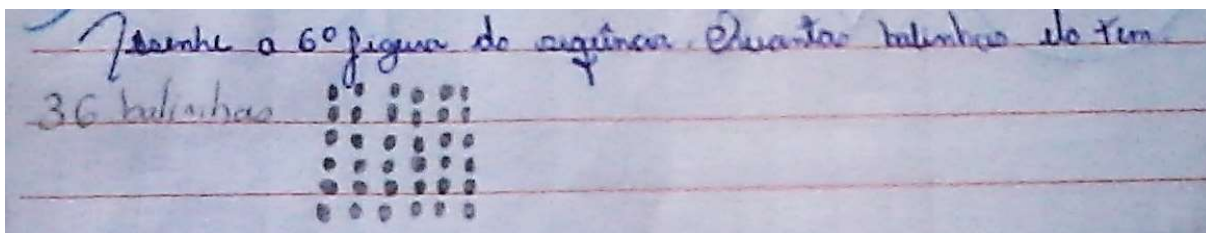 Desenhe a 6º figura da sequência. Quantas bolinhas ela tem.
36 bolinhas